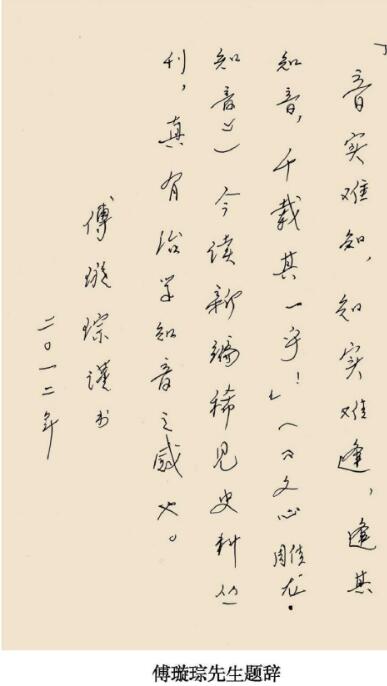 「音实难知，知实难逢，逢其
知音，千载其一乎！」（《文心雕龙·
知音》）今读新编稀见史料丛
刊，真有治学知音之感也。
傅璇琮谨书
二〇一二年
傅璇琮先生题辞